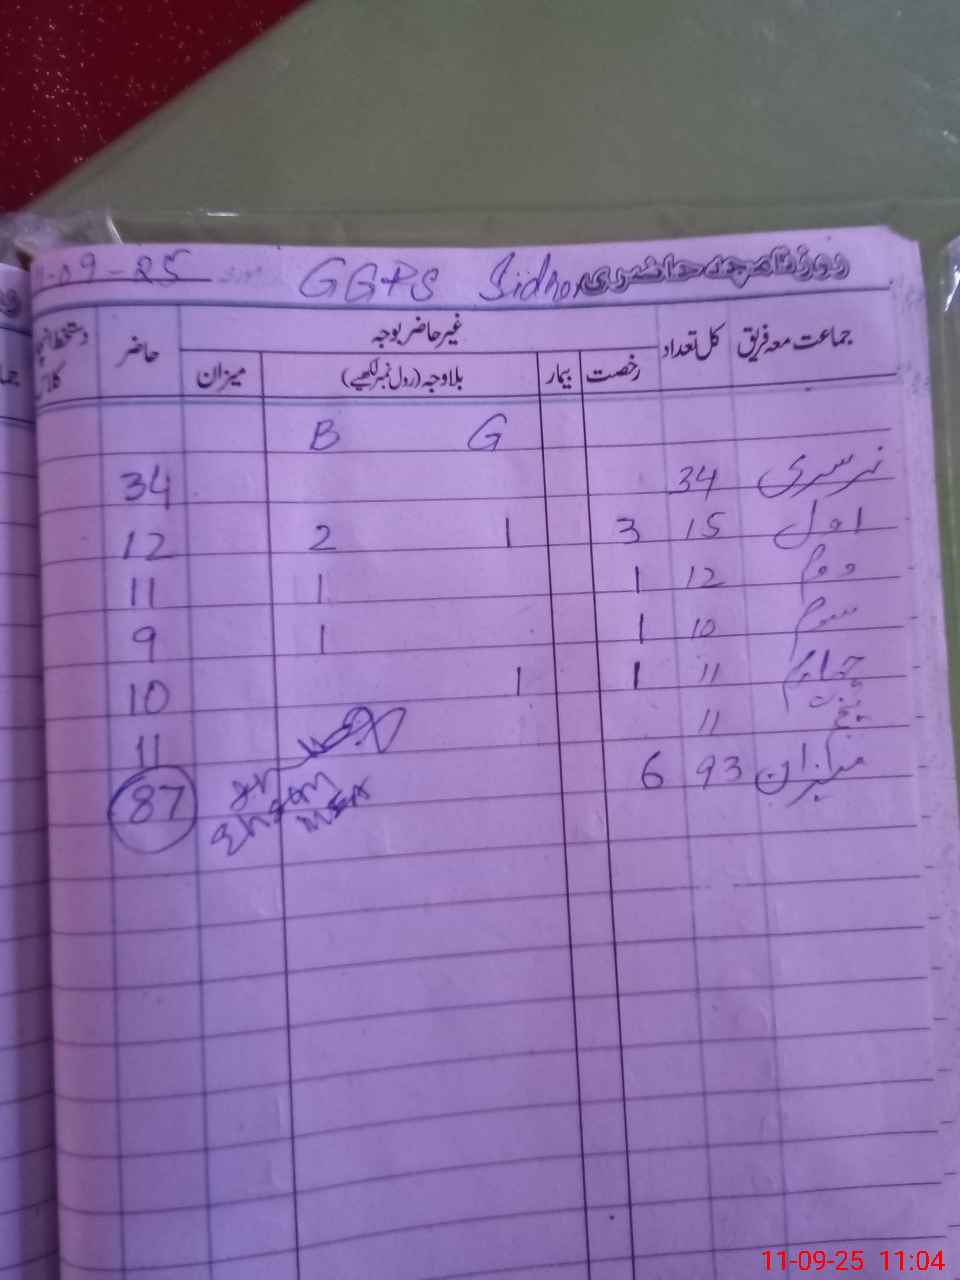 11-09-25 GGPS Sidhor روزنامچہ حاضری
جماعت معہ فریق کل تعداد غیر حاضر بوجہ حاضر دستخط انچارج کلاس
رخصت بیمار بلاوجہ (رول نمبر لکھیے) میزان
B G
نرسری 34 34
اول 15 3 1 2 12
دوم 12 1 1 11
سوم 10 1 1 9
چہارم 11 1 1 10
پنجم 11 11
میزان 93 6 87
MEA
11-09-25 11:04